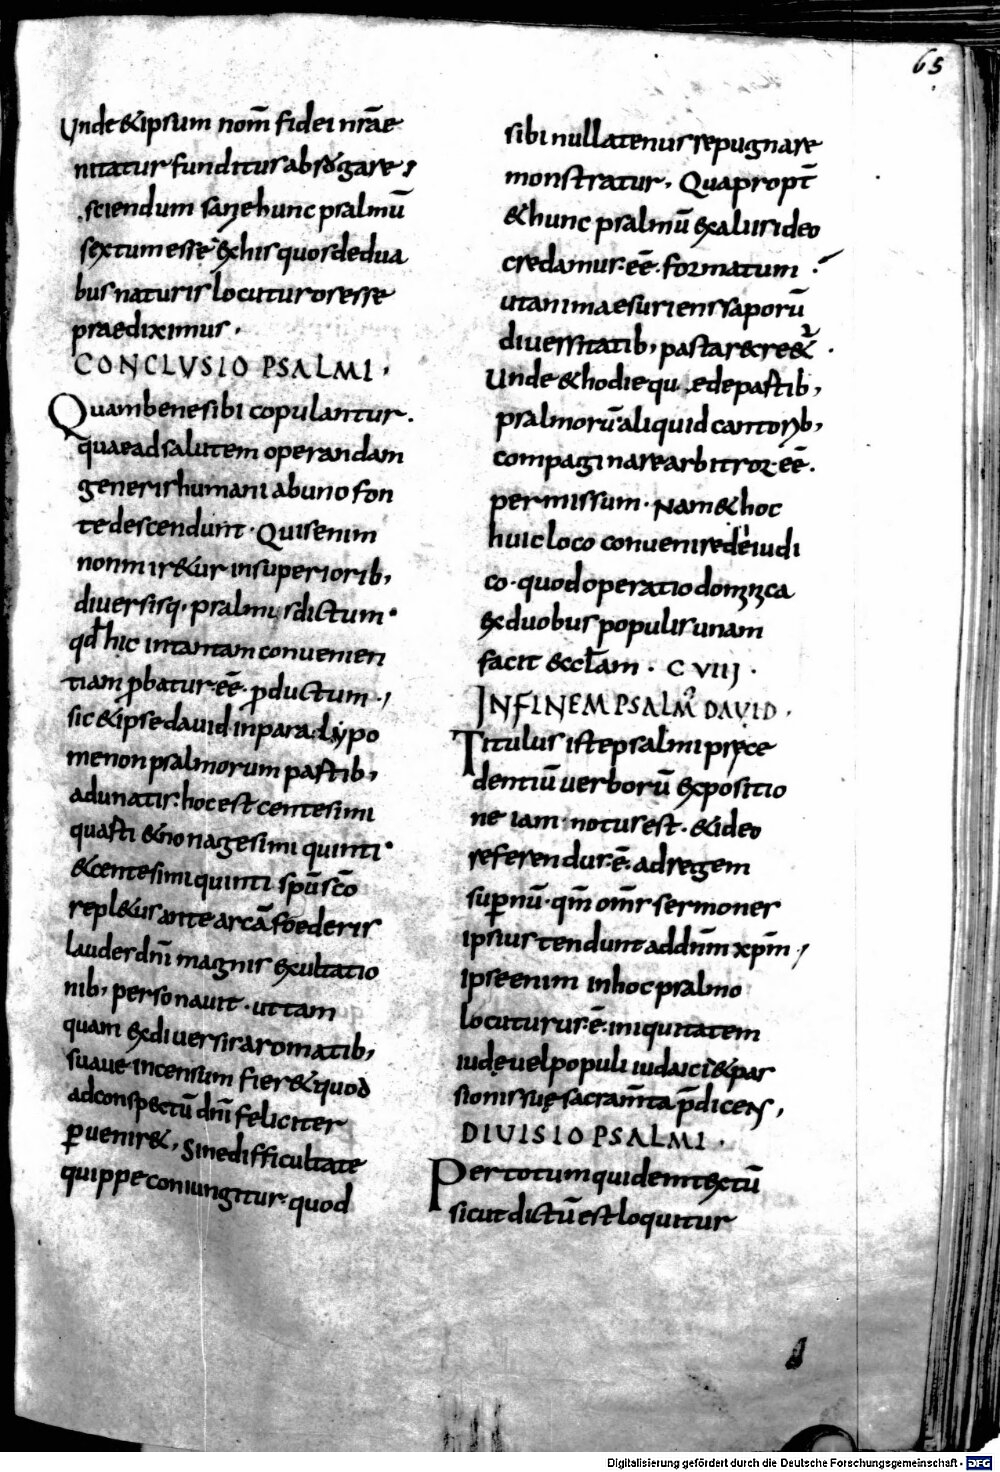 65
Unde & ipsum nom̄ fidei nr̄ae
nitatur funditus abrogare;
sciendum sane hunc psalmū
sextum esse ex his quos de dua
bus naturis locuturos esse
praediximus.
CONCLVSIO PSALMI.
Quam bene sibi copulantur.
quae ad salutem operandam
generis humani ab uno fon
te descendunt. Quis enim
non mir&ur in superiorib;
diversisq; psalmis dictum.
qd̄ hic in tantam convenien
tiam ꝓbatur eē ꝓductum;
sic & ipse david in paralypo
menon psalmorum partib;
adunatis. hoc est centesimi
quarti & nonagesimi quinti.
& centesimi quinti sp̄u sc̄o
repl&us ante arcā foederis
laudes dn̄i magnis exultatio
nib; personauit. ut tam
quam ex diversis aromatib;
suave incensum fier& quod
ad conspectū dn̄i feliciter
ꝑuenir&. Sine difficultate
quippe coniungitur. quod
sibi nullatenus repugnare
monstratur. Quapropt̄
& hunc psalmū ex aliis ideo
credamus eē formatum.
ut anima esuriens saporū
diversitatib; pasta recre&ur.
Unde & hodie quoque de partib;
psalmorū aliquid cantorib;
compaginare arbitror eē
permissum. Nam & hoc
huic loco convenire deiudi
co. quod operatio dominica
ex duobus populis unam
facit eccl̄am. C VIII.
IN FINEM PSALM' DAVID.
Titulus iste psalmi pręce
dentiū verborū expositio
ne iam notus est. & ideo
referendus ē ad regem
suꝑnū. qm̄ om̄s sermones
ipsius tendunt ad dn̄m xp̄m;
ipse enim in hoc psalmo
locuturus ē. iniquitatem
iudę vel populi iudaici & pas
sionis suę sacram̄ta p̄dicens;
DIVISIO PSALMI.
Per totum quidem textū
sicut dictū est loquitur
Digitalisierung gefördert durch die Deutsche Forschungsgemeinschaft - DFG